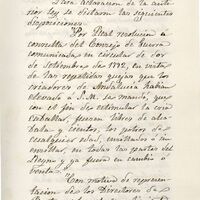 Para aclaracion de la ante
rior ley se dictaron las siguientes
disposiciones.
"Por Real resolucion a
consulta del Consejo de Guerra
comunicada en circular de
de Setiembre de 1792, en vista
de las repetidas quejas que los
criadores de Andalucia habian
elevado a S.M. se mandó, que
con el fin de estimular la cria
caballar, fuesen libres de alca
bala y cientos, los potros de
cualquier edad, cerrados o
cerriles, en todas las partes del
Reyno y ya fuera en cambio ó
venta."
"Con motivo de represen
tacion de los Directores de